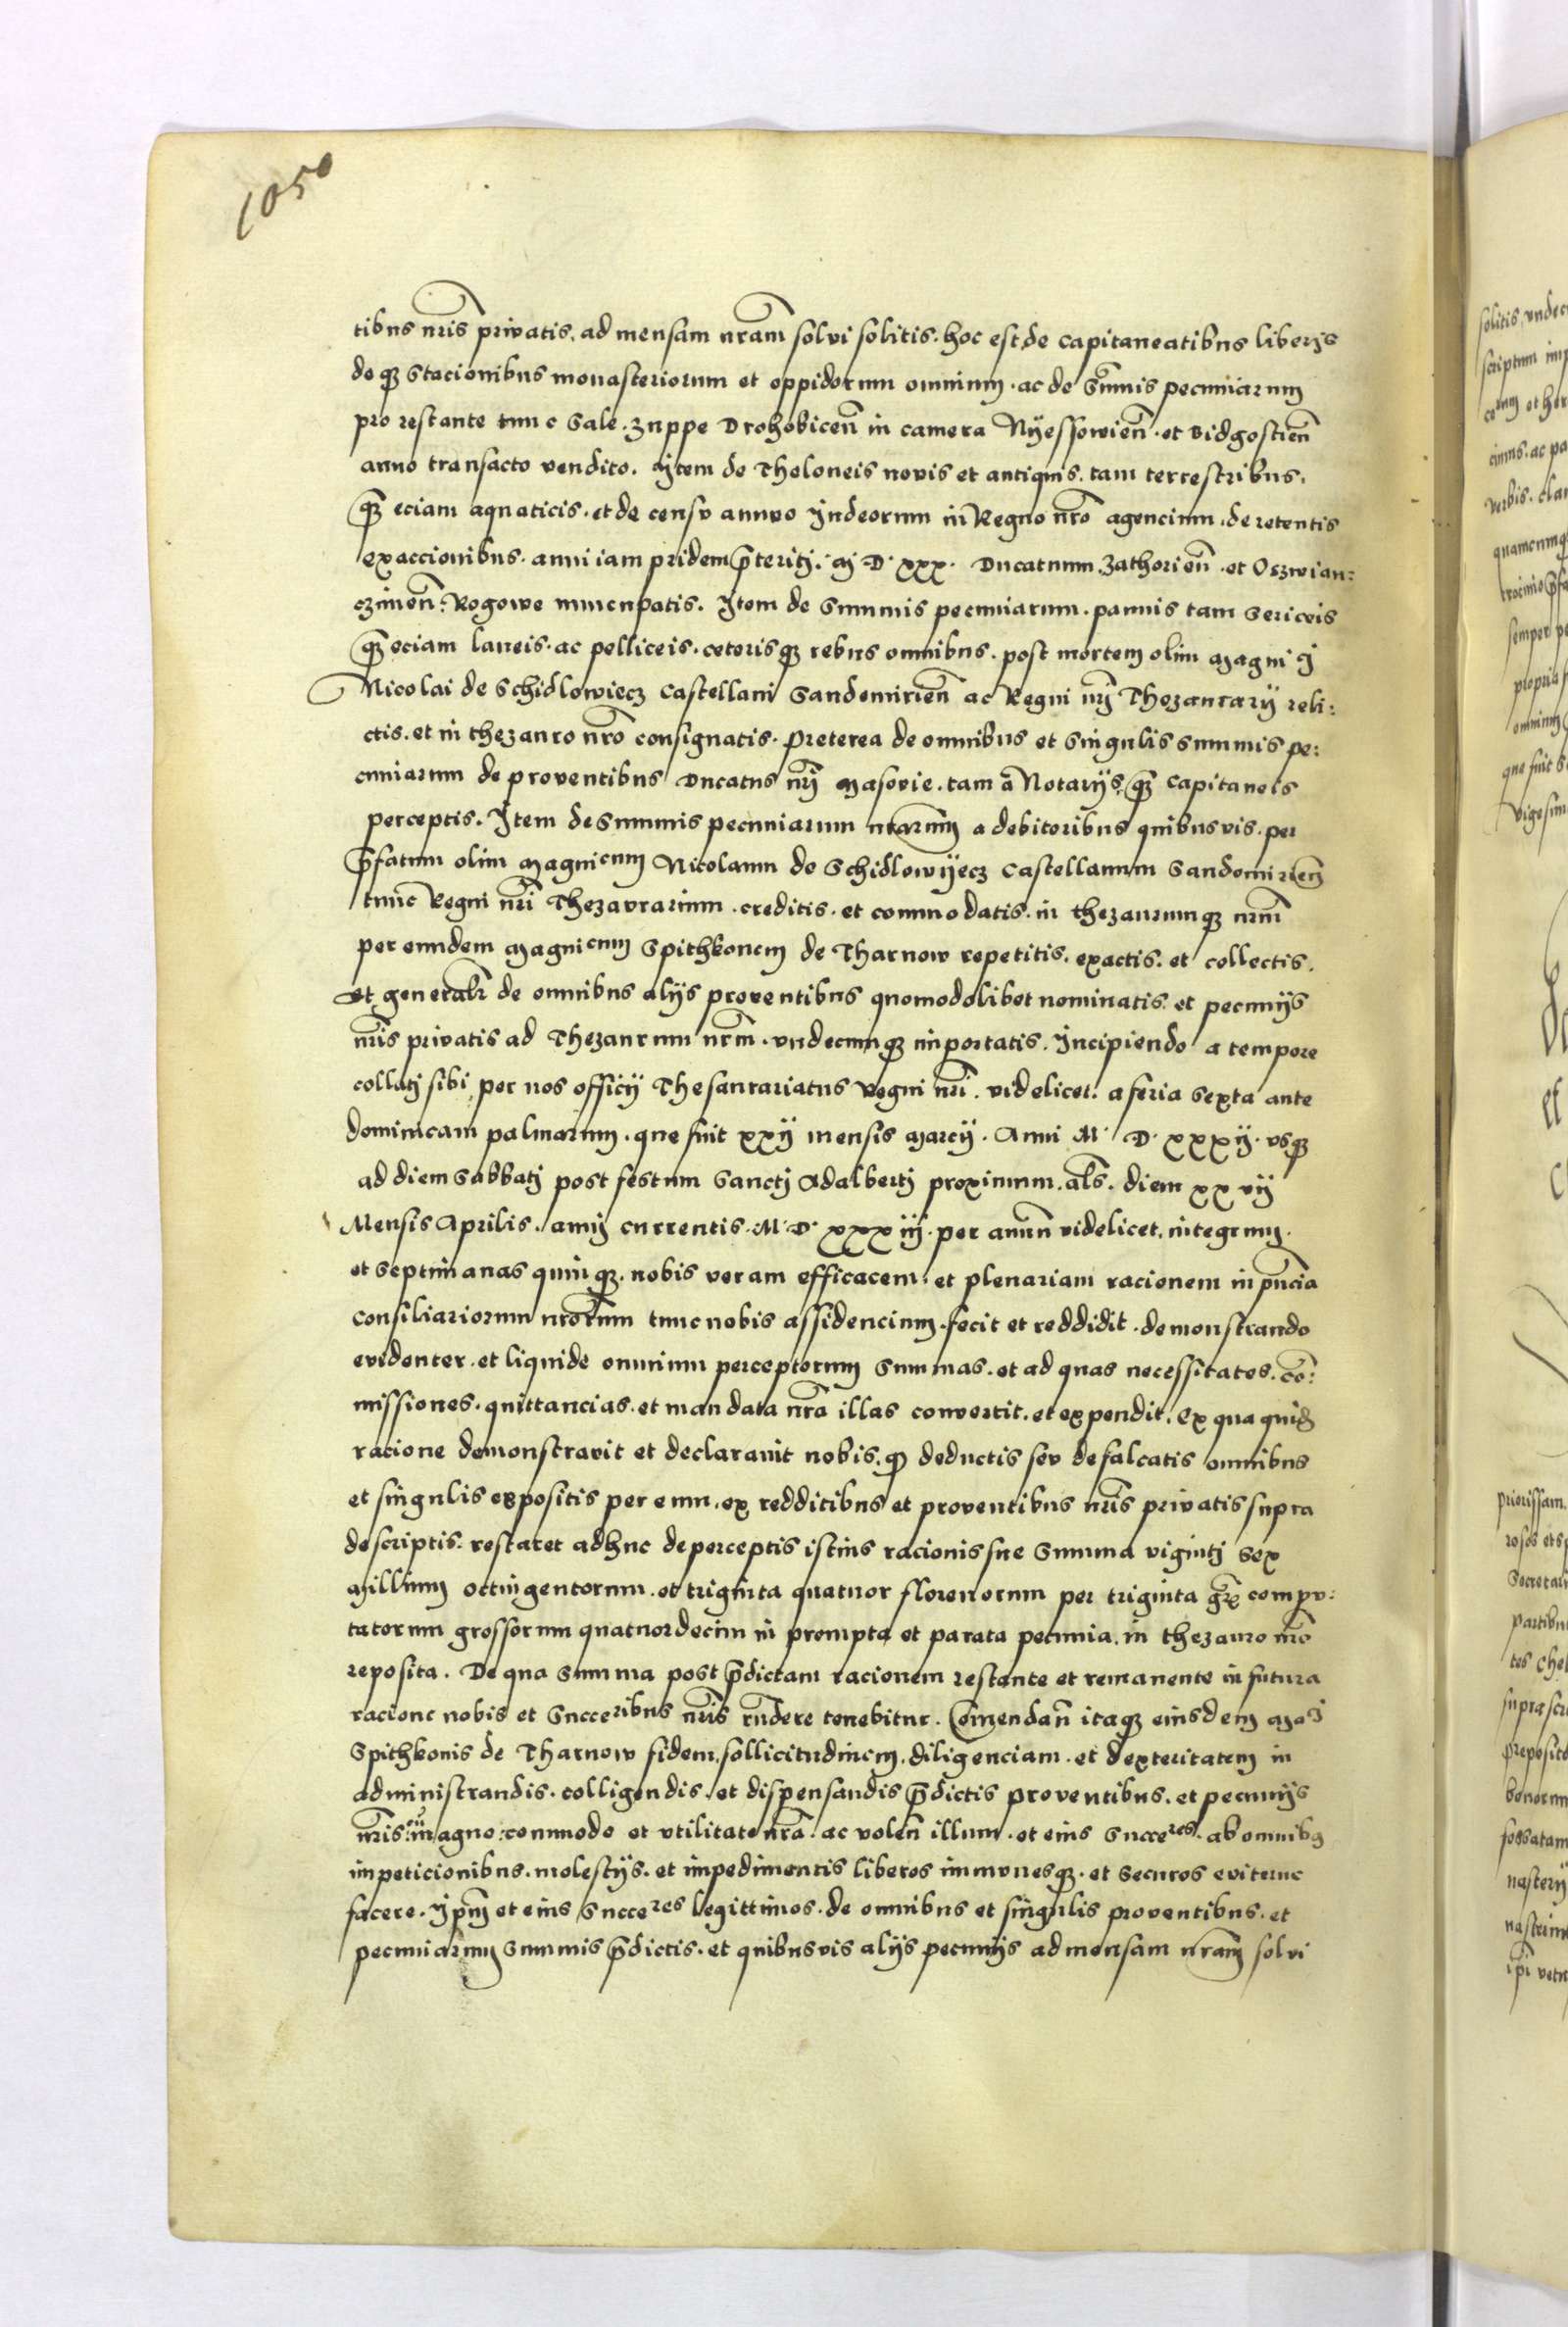 1050
tibus nris privatis. ad mensam nram solvi solitis. hoc est de capitaneatibus liberis
de qz Stacionibus monasteriorum et oppidorum omnium. ac de Summis pecuniarum
pro restante tunc Sale. Zuppe Drohobicen in camera Nyessowien. et Bidgostien
anno transacto vendito. Item de Theloneis novis et antiquis. tam terrestribus.
qz eciam aquaticis. et de censu annuo Iudeorum in Regno nro agencium. de retentis
exaccionibus. anni iam pridem preteriti. M D. xxx. Ducatuum Zathorien. et Oszwian:
czimen: Rogowe nuncupatis. Item de Summis pecuniarum. pannis tam Sericeis
qz eciam laneis. ac pelliceis. ceterisqz rebus omnibus. post mortem olim Magni ci
Nicolai de Schidlowiecz Castellani Sandomirien ac Regni nri Thezaurarij reli:
ctis. et in thezauro nro consignatis. Preterea de omnibus et Singulis summis pe:
cuniarum de proventibus Ducatus nri Masovie. tam a Notarijs, qz Capitaneis
perceptis. Item de Summis pecuniarum nrarum a debitoribus quibusvis. per
pfatum olim Magnicum Nicolaum de Schidlowyecz Castellanum Sandomirien
tunc Regni nri Thezaurarium. creditis. et commodatis. in thezaurumqz nrum
per eundem Magnicum Spithkonem de Tharnow repetitis. exactis. et collectis.
et generalr de omnibus alijs proventibus quomodolibet nominatis. et pecunijs
nris privatis ad Thezaurum nrm. undecumqz importatis. Incipiendo a tempore
collati sibi per nos officij Thesaurariatus Regni nri. videlicet. a feria Sexta ante
dominicam palmarum. que fuit xxij mensis Marcij. Anni M. D. xxxij. usqz
ad diem Sabbati post festum Sancti Adalberti proximum. als. diem xxvij
Mensis Aprilis. anni currentis. M. D. xxxiij. per annum videlicet. integrum.
et Septimanas quinqz. nobis veram efficacem. et plenariam racionem in pncia
Consiliariorum nrorum tunc nobis assidencium. fecit et reddidit. demonstrando
evidenter. et liquide omnium perceptorum Summas. et ad quas necessitates. co:
missiones. quittancias. et mandata nra illas convertit. et expendit. Ex qua quid
racione demonstravit et declaravit nobis. qz deductis seu defalcatis omnibus
et singulis expositis per eum. ex redditibus et proventibus nris privatis supra
descriptis. restaret adhuc de perceptis istius racionis sue Summa viginti Sex
Millium octingentorum. et triginta quatuor florenorum per triginta gr compu:
tatorum grossorum quatuordecim in prompta et parata pecunia. in thezauro nro
reposita. De qua Summa post pdictam racionem restante et remanente in futura
racione nobis et Succeribus nris rndere tenebitur. Comendan itaqz eiusdem Mci
Spithkonis de Tharnow fidem. sollicitudinem. diligenciam. et dexteritatem in
administrandis. colligendis. et dispensandis pdictis proventibus. et pecunijs
nris. cu magno. commodo et utilitate nra. ac volen illum. et eius Succeres. ab omnibus
impeticionibus. molestijs. et impedimentis liberos immunesqz. et Securos eviterne
facere. Ipm et eius Succeres legittimos. de omnibus et singulis proventibus. et
pecuniarum Summis pdictis. et quibusvis alijs pecunijs ad mensam nram solvi